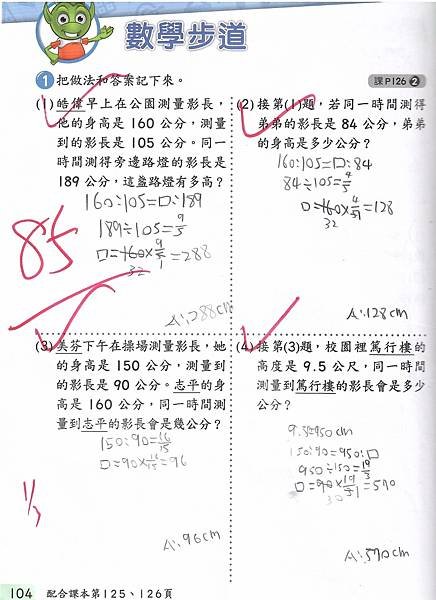 數學步道
1 把做法和答案記下來。
課P126 2
(1) 皓偉早上在公園測量影長，
他的身高是 160 公分，測量
到的影長是 105 公分。同一
時間測得旁邊路燈的影長是
189 公分，這盞路燈有多高？
160:105=□:189
189÷105=9/5
□=160×9/5=288
32
1
A:288cm
(2) 接第(1)題，若同一時間測得
弟弟的影長是 84 公分，弟弟
的身高是多少公分？
160:105=□:84
84÷105=4/5
□=160×4/5=128
32
A:128cm
85
(3) 美芬下午在操場測量影長，她
的身高是 150 公分，測量到
的影長是 90 公分。志平的身
高是 160 公分，同一時間測
量到志平的影長會是幾公分？
150:90=16/15
□=90×16/15=96
A:96cm
(4) 接第(3)題，校園裡篤行樓的
高度是 9.5 公尺，同一時間
測量到篤行樓的影長會是多少
公分？
9.5=950cm
150:90=950:□
950÷150=19/3
□=90×19/3=570
30
1
A:570cm
1/3
104 配合課本第125、126頁